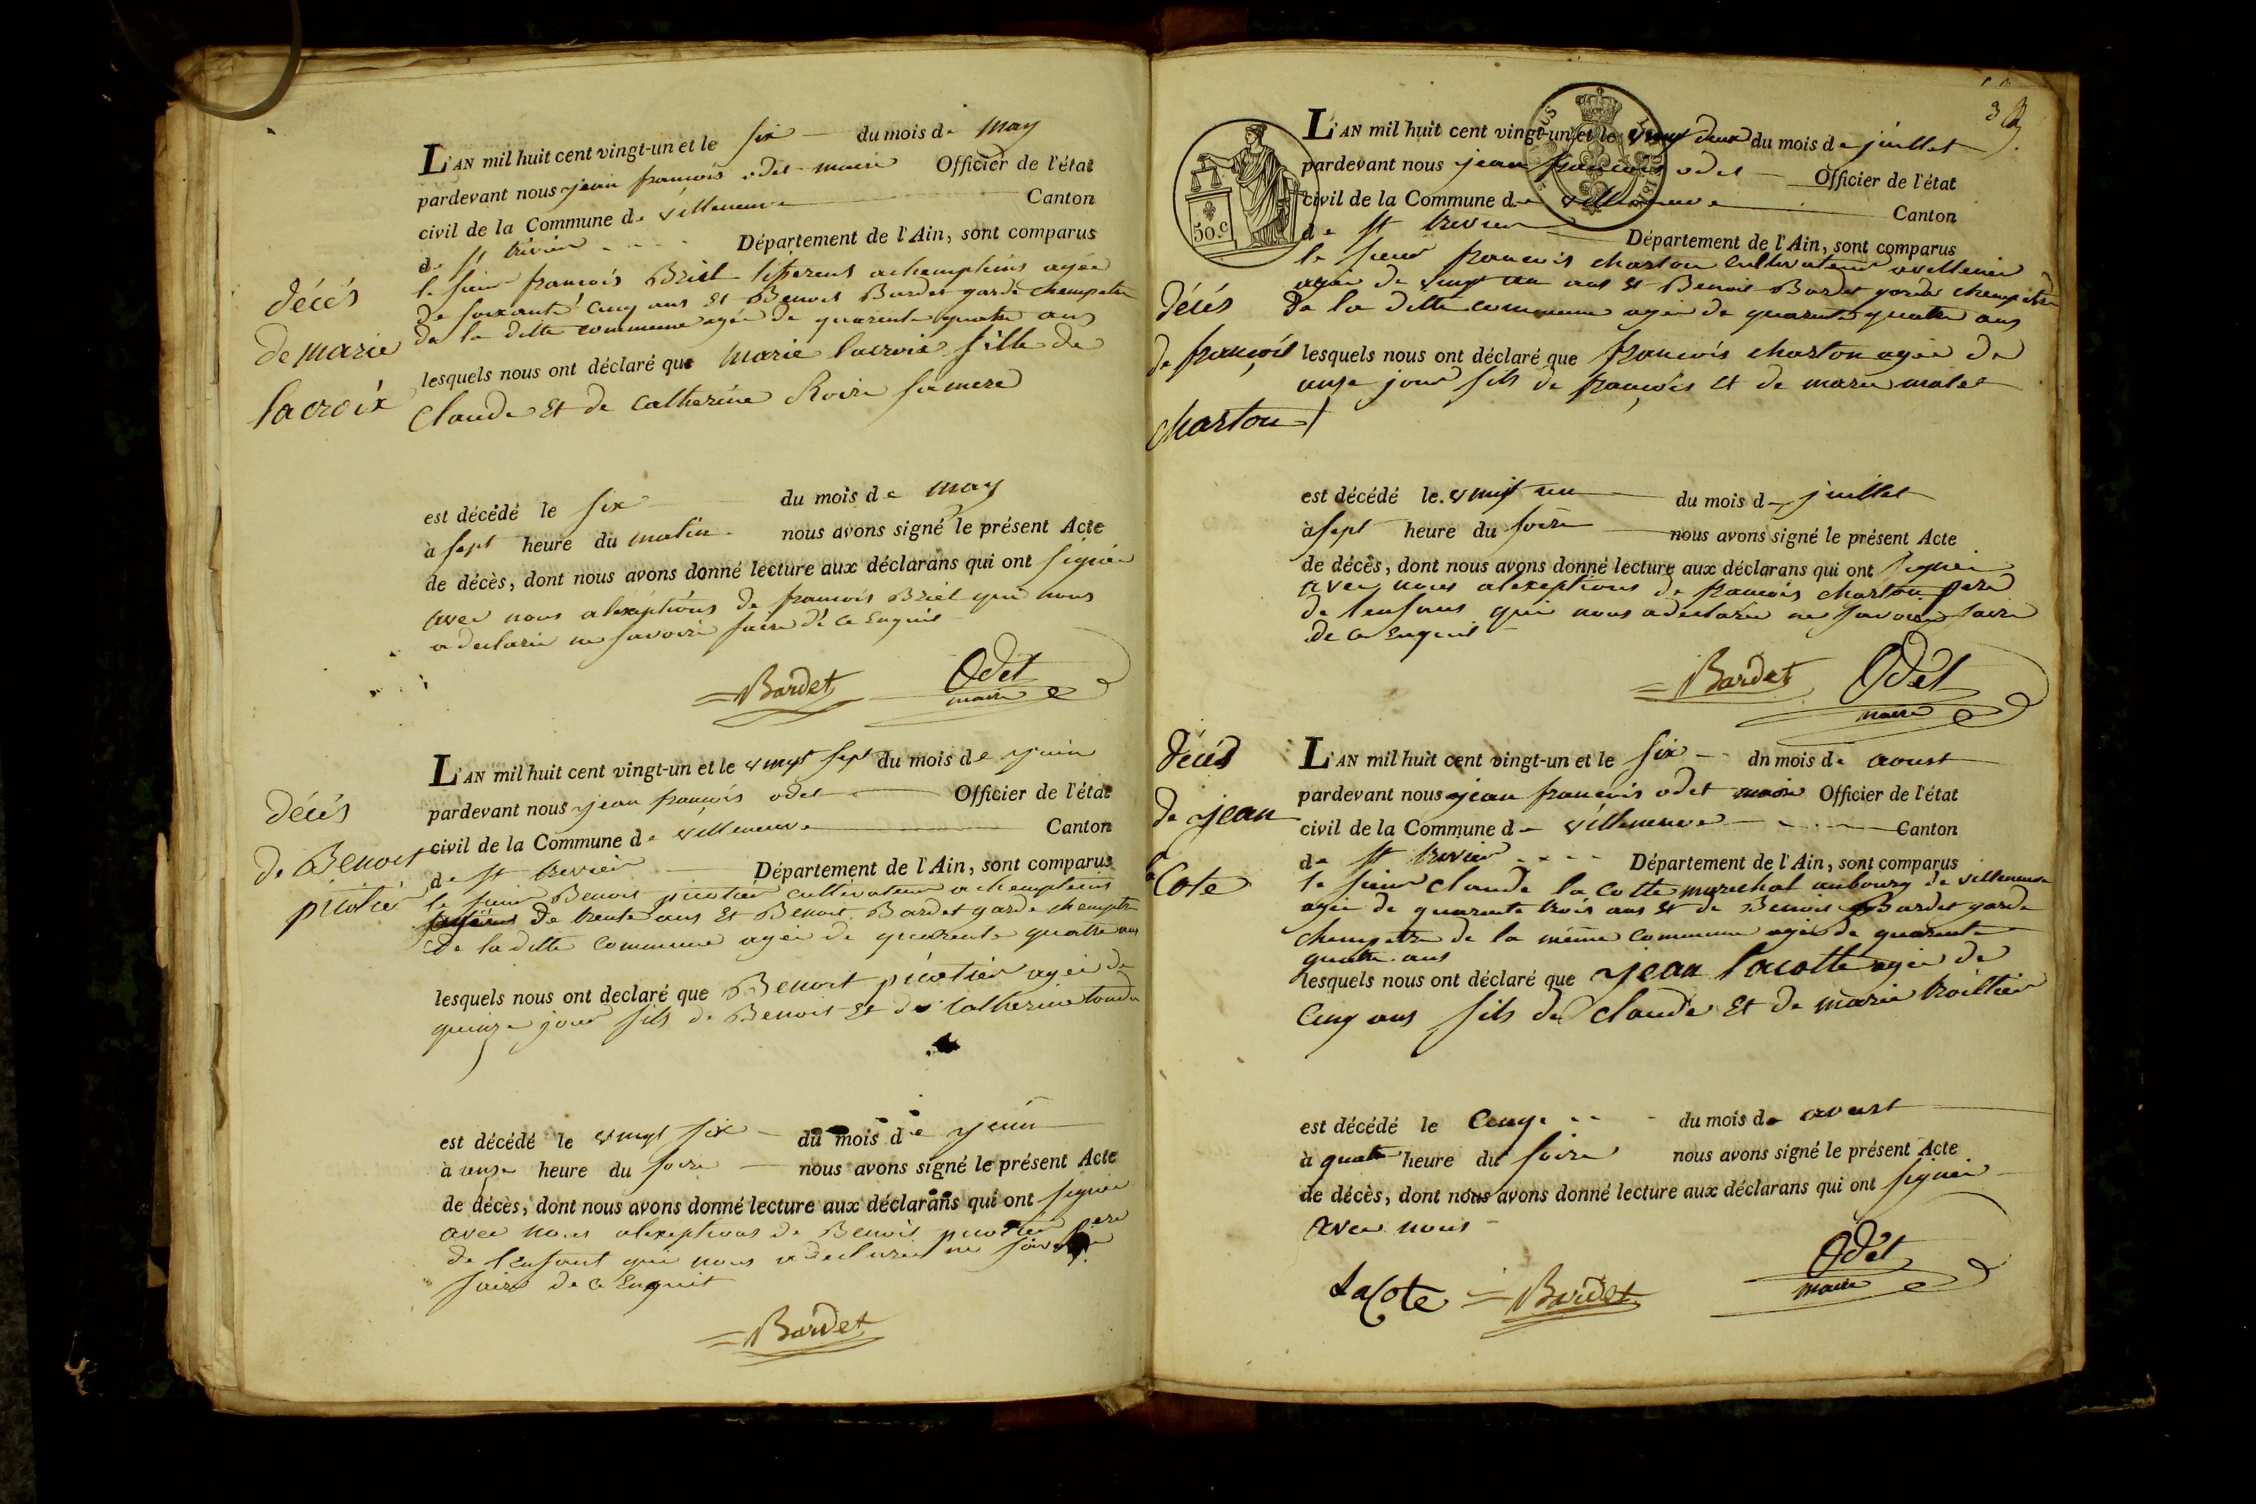 décés
de marie
lacroix
L'AN mil huit cent vingt-un et le six du mois de may
pardevant nous jean francois odet maire Officier de l'état
civil de la Commune de villeneuve Canton
de st trivier Département de l'Ain, sont comparus
le sieur francois Briel tisserent achemplins agée
de soixante cinq ans et Benoit Bardet garde chempetre
de la ditte commune agée de quarente quatre ans
lesquels nous ont déclaré que marie lacroix fille de
Claude et de Catherine Roire sa mere
est décédé le six du mois de may
à sept heure du matin nous avons signé le présent Acte
de décès, dont nous avons donné lecture aux déclarans qui ont signée
avec nous alexéptions de francois Briel qui nous
a declarée ne savoire faire de ce Enquis
Bardet Odet
maire
décés
de Benoit
picotier
L'AN mil huit cent vingt-un et le vingt sept du mois de juin
pardevant nous jean francois odet Officier de l'état
civil de la Commune de villeneuve Canton
de st trevier Département de l'Ain, sont comparus
le sieur Benoit picotier cultivateur a chemplins
de trente ans et Benoit Bardet garde chempetre
de la ditte commune agée de quarente quatre ans
lesquels nous ont declaré que Benoit picotier agée de
quinze jour fils de Benoit et de Catherine
est décédé le vingt six du mois de juin
à onze heure du soire nous avons signé le présent Acte
de décès, dont nous avons donné lecture aux déclarans qui ont signée
avec nous alexeptions de Benoit picotier pere
de l'enfant qui nous a declaree ne savoire
faire de ce Enquit
Bardet
décés
de francois
charton
L'AN mil huit cent vingt-un et le vingt deux du mois de juillet
pardevant nous jean francois odet Officier de l'état
civil de la Commune de villeneuve Canton
de st trevier Département de l'Ain, sont comparus
le sieur francois charton cultivateur
agée de vingt un ans et Benoit Bardet garde chempetre
de la ditte commune agée de quarente quatre ans
lesquels nous ont déclaré que francois charton agée de
onze jour fils de francois et de marie malet
est décédé le vingt un du mois de juillet
à sept heure du soire nous avons signé le présent Acte
de décès, dont nous avons donné lecture aux déclarans qui ont signée
avec nous alexeptions de francois charton pere
de lenfans qui nous adeclarée ne savoire faire
de ce Enquis
Bardet Odet
maire
50.c
décés
de jean
la
Cote
L'AN mil huit cent vingt-un et le six du mois de aoust
pardevant nous jean francois odet maire Officier de l'état
civil de la Commune de villeneuve Canton
de st trevier Département de l'Ain, sont comparus
le sieur claude la cotte marechal aubourg de villeneuve
agée de quarente trois ans et de Benoit Bardet garde
chempetre de la même commune agée de quarente
quatre ans
lesquels nous ont déclaré que jean lacotte agée de
Cinq ans fils de claude et de marie troillier
est décédé le Cinq du mois de aoust
à quatre heure du soire nous avons signé le présent Acte
de décès, dont nous avons donné lecture aux déclarans qui ont signée
avec nous
LaCote Bardet Odet
maire